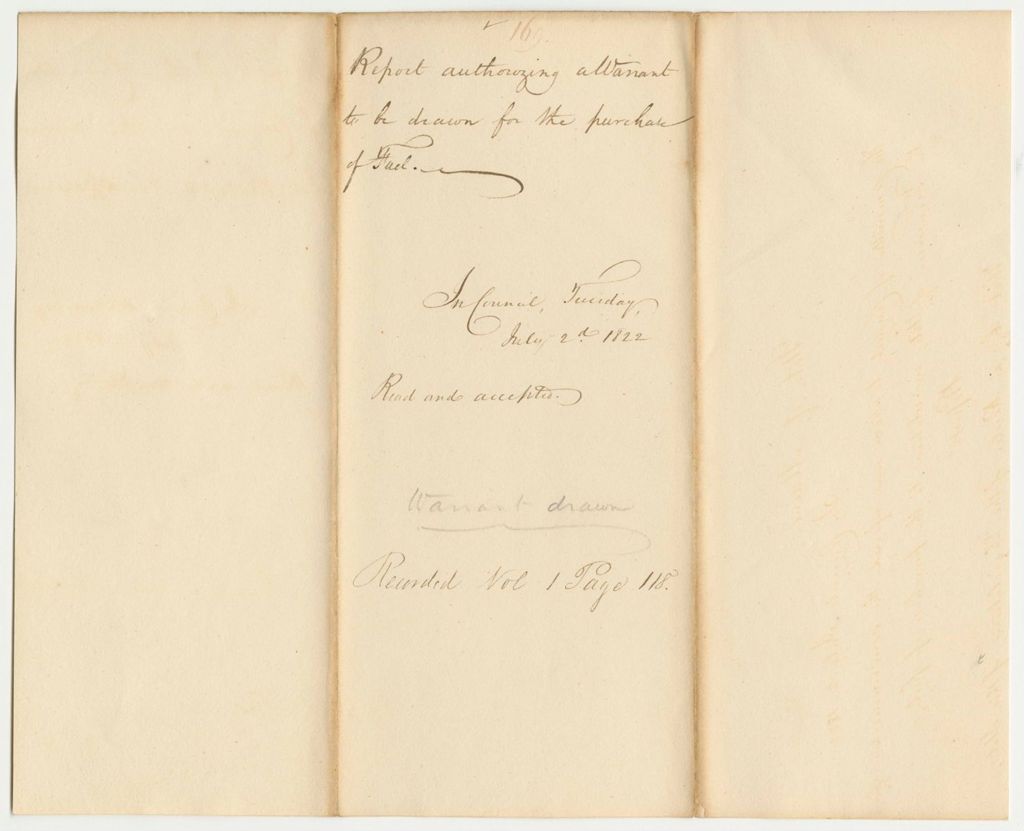 169.
Report authorizing a Warrant
to be drawn for the purchase
of Fuel.
In Council, Tuesday,
July 2d. 1822
Read and accepted.
Warrant drawn
Recorded Vol 1 Page 118.